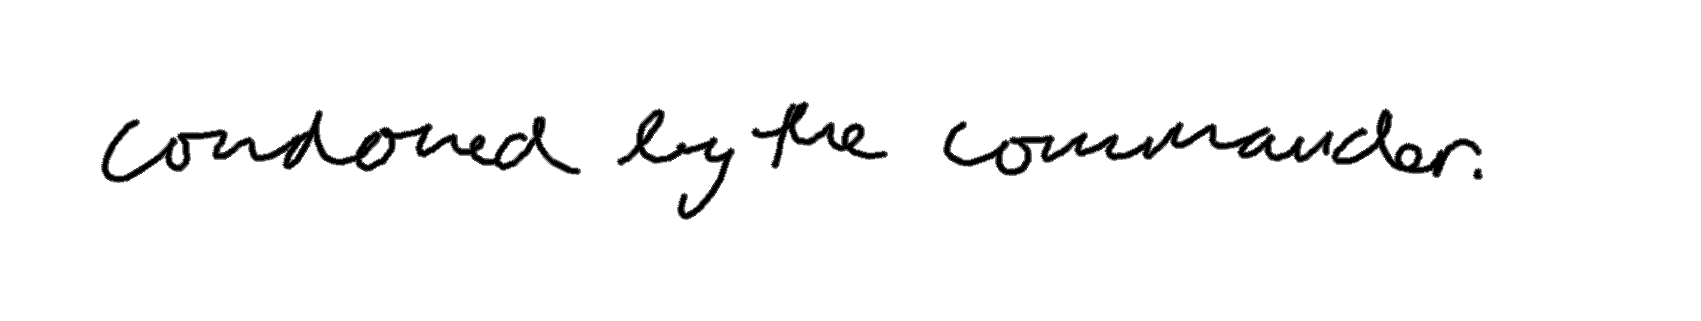 condoned by the commander.